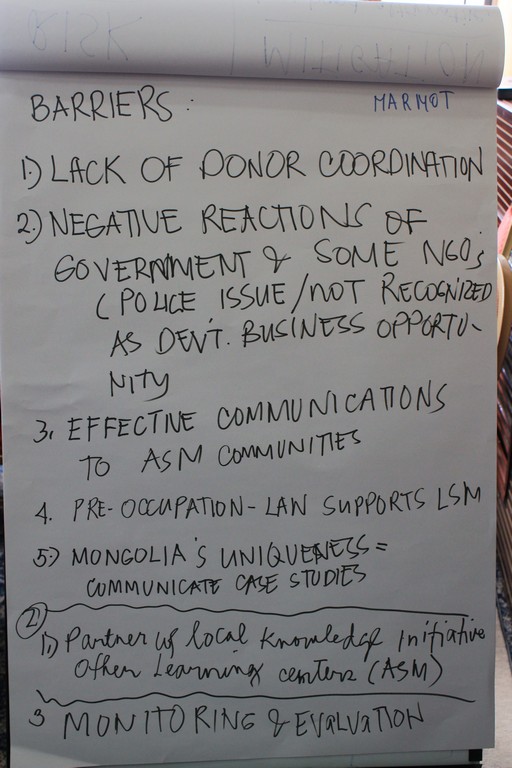 RISK MITIGATION
BARRIERS:
MARMOT
1.) LACK OF DONOR COORDINATION
2.) NEGATIVE REACTIONS OF
GOVERNMENT & SOME NGO's
(POLICE ISSUE/NOT RECOGNIZED
AS DEV'T. BUSINESS OPPORTU-
NITY
3. EFFECTIVE COMMUNICATIONS
TO ASM COMMUNITIES
4. PRE-OCCUPATION - LAW SUPPORTS LSM
5.) MONGOLIA'S UNIQUENESS =
COMMUNICATE CASE STUDIES
2
1.) Partner w/ local knowledge initiative
Other Learning centers (ASM)
3 MONITORING & EVALUATION